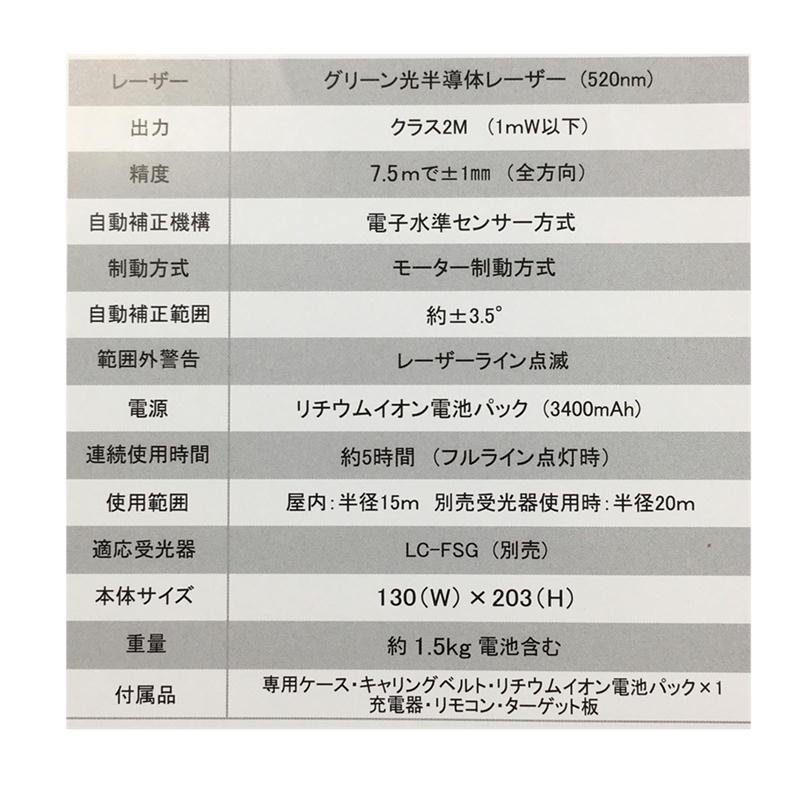 レーザー グリーン光半導体レーザー (520nm)
出力 クラス2M (1mW以下)
精度 7.5mで±1㎜ (全方向)
自動補正機構 電子水準センサー方式
制動方式 モーター制動方式
自動補正範囲 約±3.5°
範囲外警告 レーザーライン点滅
電源 リチウムイオン電池パック (3400mAh)
連続使用時間 約5時間 (フルライン点灯時)
使用範囲 屋内:半径15m 別売受光器使用時:半径20m
適応受光器 LC-FSG (別売)
本体サイズ 130(W)×203(H)
重量 約1.5kg 電池含む
付属品 専用ケース・キャリングベルト・リチウムイオン電池パック×1
充電器・リモコン・ターゲット板